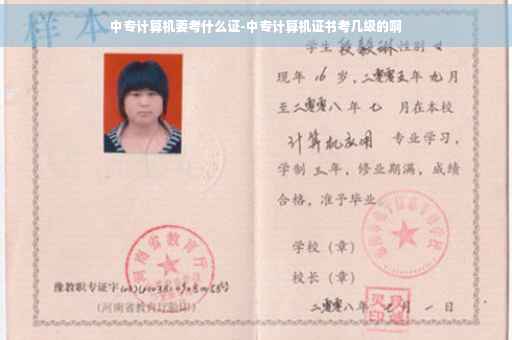 中专计算机要考什么证-中专计算机证书考几级的啊
样本
学生段毅琳性别女
现年16岁，二零零五年九月
至二零零八年七月在本校
计算机应用 专业学习，
学制三年，修业期满，成绩
合格，准予毕业。
学校（章）
校长（章）
二零零八年七月一日
河南省教育厅
豫教职专证字
（河南省教育厅验印）